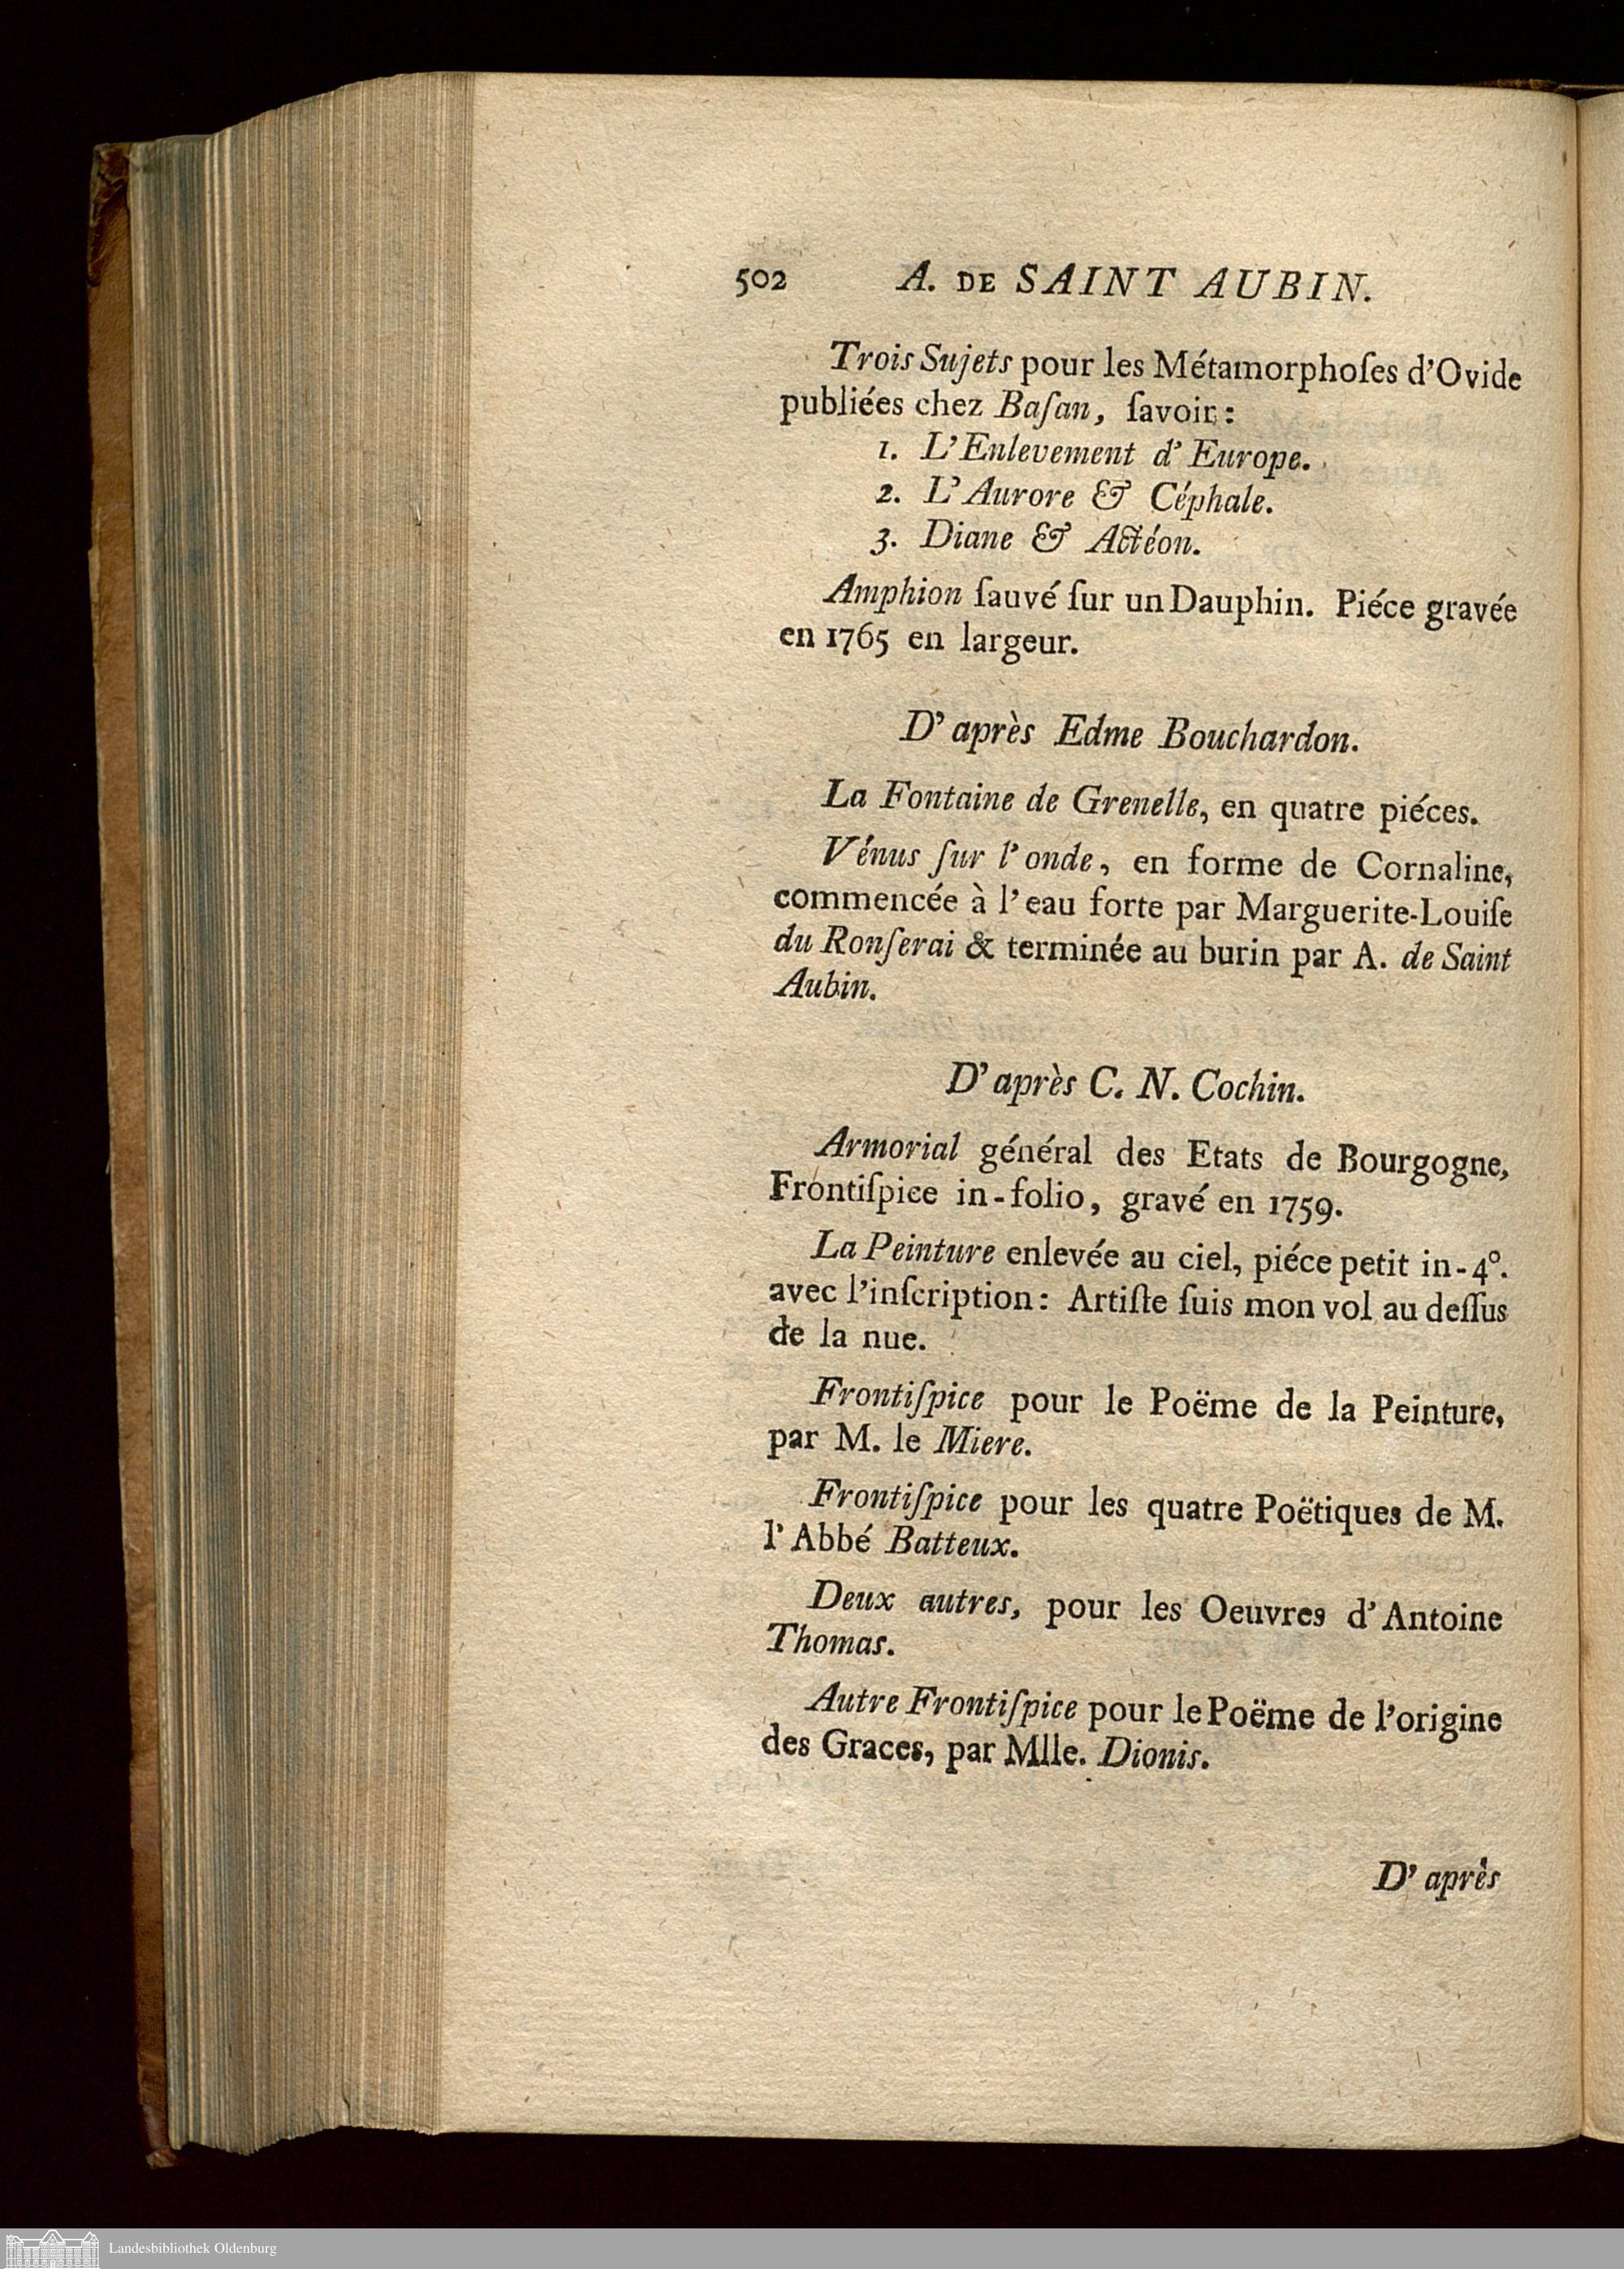 502 A. DE SAINT AUBIN.
Trois Sujets pour les Métamorphoſes d'Ovide
publiées chez Baſan, ſavoir:
1. L'Enlevement d'Europe.
2. L'Aurore & Céphale.
3. Diane & Actéon.
Amphion ſauvé ſur un Dauphin. Piéce gravée
en 1765 en largeur.
D'après Edme Bouchardon.
La Fontaine de Grenelle, en quatre piéces.
Vénus ſur l'onde, en forme de Cornaline,
commencée à l'eau forte par Marguerite-Louiſe
du Ronſerai & terminée au burin par A. de Saint
Aubin.
D'après C. N. Cochin.
Armorial général des Etats de Bourgogne,
Frontiſpice in-folio, gravé en 1759.
La Peinture enlevée au ciel, piéce petit in-4°.
avec l'inſcription: Artiſte ſuis mon vol au deſſus
de la nue.
Frontiſpice pour le Poëme de la Peinture,
par M. le Miere.
Frontiſpice pour les quatre Poëtiques de M.
l'Abbé Batteux.
Deux autres, pour les Oeuvres d'Antoine
Thomas.
Autre Frontiſpice pour le Poëme de l'origine
des Graces, par Mlle. Dionis.
D'après
Landesbibliothek Oldenburg